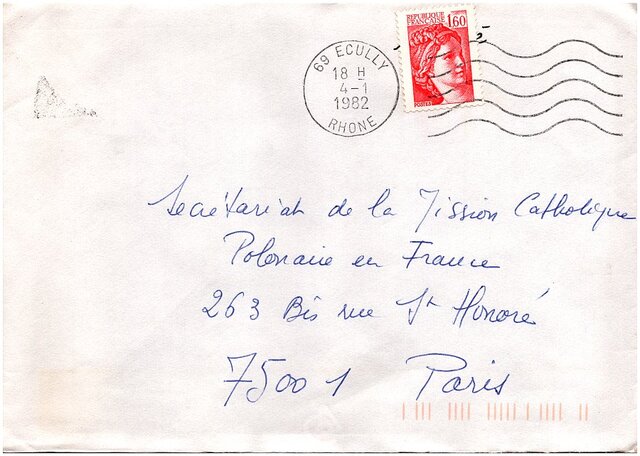 69 ECULLY
18 H
4-1
1982
RHONE
REPUBLIQUE
FRANCAISE
1.60
POSTES
Secrétariat de la Mission Catholique
Polonaise en France
263 Bis rue St Honoré
75001 Paris